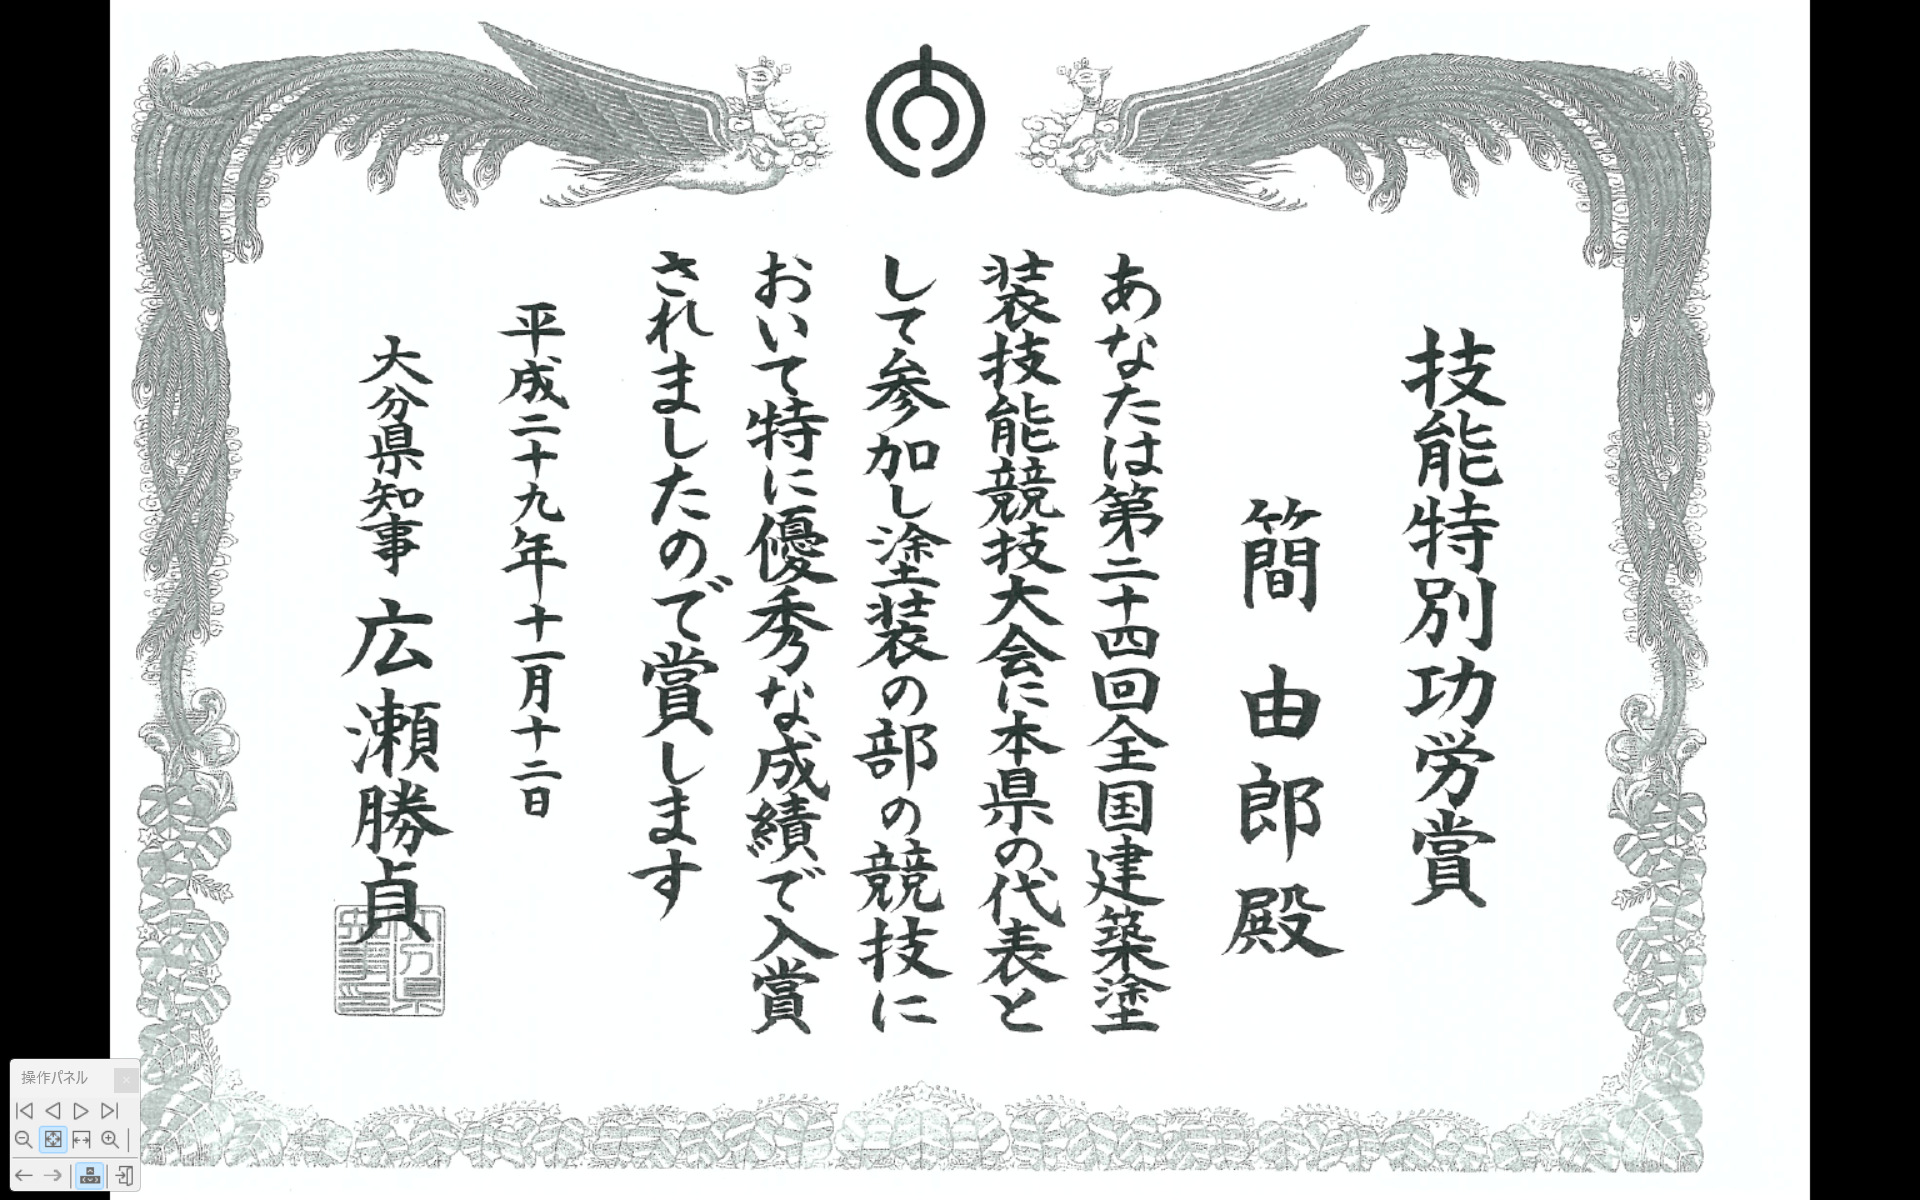 技能特別功労賞
簡由郎殿
あなたは第二十四回全国建築塗
装技能競技大会に本県の代表と
して参加し塗装の部の競技に
おいて特に優秀な成績で入賞
されましたので賞します
平成二十九年十一月十二日
大分県知事 広瀬勝貞
操作パネル